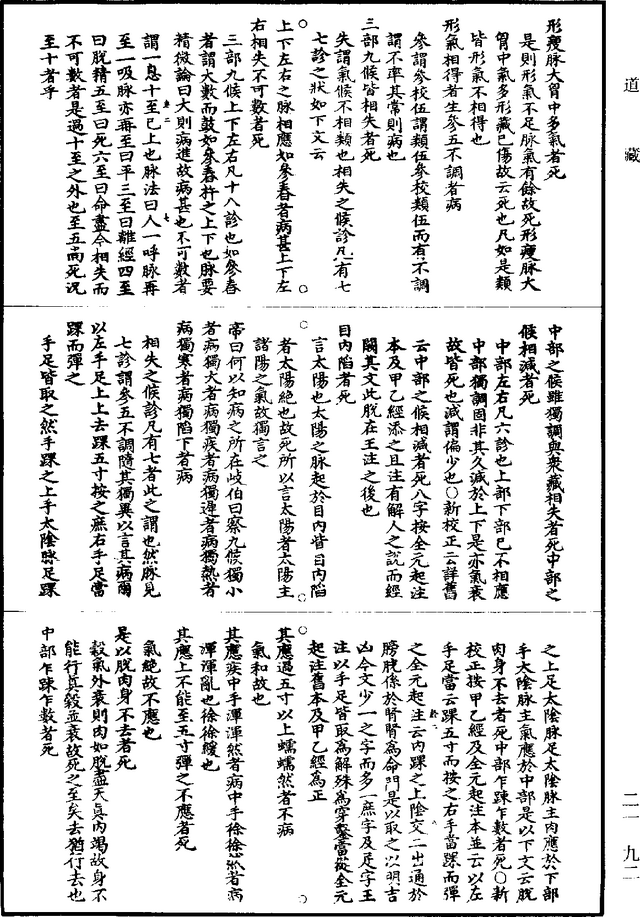 形瘦脉大胷中多氣者死
是則形氣不足脉氣有餘故死形瘦脉大
胷中氣多形藏已傷故云死也凡如是類
皆形氣不相得也
形氣相得者生參五不調者病
參謂參校伍謂類伍參校類伍而有不調
謂不率其常則病也
三部九候皆相失者死
失謂氣候不相類也相失之候診凡有七
七診之狀如下文云
上下左右之脉相應如參舂者病甚上下左
右相失不可數者死
三部九候上下左右凡十八診也如參舂
者謂大數而鼓如參舂杵之上下也脉要
精微論曰大則病進故病甚也不可數者
謂一息十至已上也脉法曰人一呼脉再
至一吸脉亦再至曰平三至曰離經四至
曰脫精五至曰死六至曰命盡今相失而
不可數者是過十至之外也至五尚死況
至十者乎
中部之候雖獨調與衆藏相失者死中部之
候相減者死
中部左右凡六診也上部下部已不相應
中部獨調固非其久減於上下是亦氣衰
故皆死也減謂偏少也○新校正云詳舊
云中部之候相減者死八字按全元起注
本及甲乙經添之且注有解人之說而經
闕其文此脫在王注之後也
目內陷者死
言太陽也太陽之脉起於目內眥目內陷
者太陽絶也故死所以言太陽者太陽主
諸陽之氣故獨言之
帝曰何以知病之所在岐伯曰察九候獨小
者病獨大者病獨疾者病獨遲者病獨熱者
病獨寒者病獨陷下者病
相失之候診凡有七者此之謂也然脉見
七診謂參五不調隨其獨異以言其病爾
以左手足上上去踝五寸按之庶右手足當
踝而彈之
手足皆取之然手踝之上手太陰脉足踝
之上足太陰脉足太陰脉主肉應於下部
手太陰脉主氣應於中部是以下文云脫
肉身不去者死中部乍踈乍數者死○新
校正按甲乙經及全元起注本並云以左
手足當云踝五寸而按之右手當踝而彈
之全元起注云內踝之上陰交之出通於
膀胱係於腎腎爲命門是以取之以明吉
凶今文少一之字而多一庶字及足字王
注以手足皆取爲解殊爲穿鑿當從全元
起注舊本及甲乙經爲正
其應過五寸以上蠕蠕然者不病
氣和故也
其應疾中手渾渾然者病中手徐徐然者病
渾渾亂也徐徐緩也
其應上不能至五寸彈之不應者死
氣絶故不應也
是以脫肉身不去者死
穀氣外衰則肉如脫盡天真內竭故身不
能行真穀並衰故死之至矣去猶行去也
中部乍踈乍數者死
道藏
二一
九二